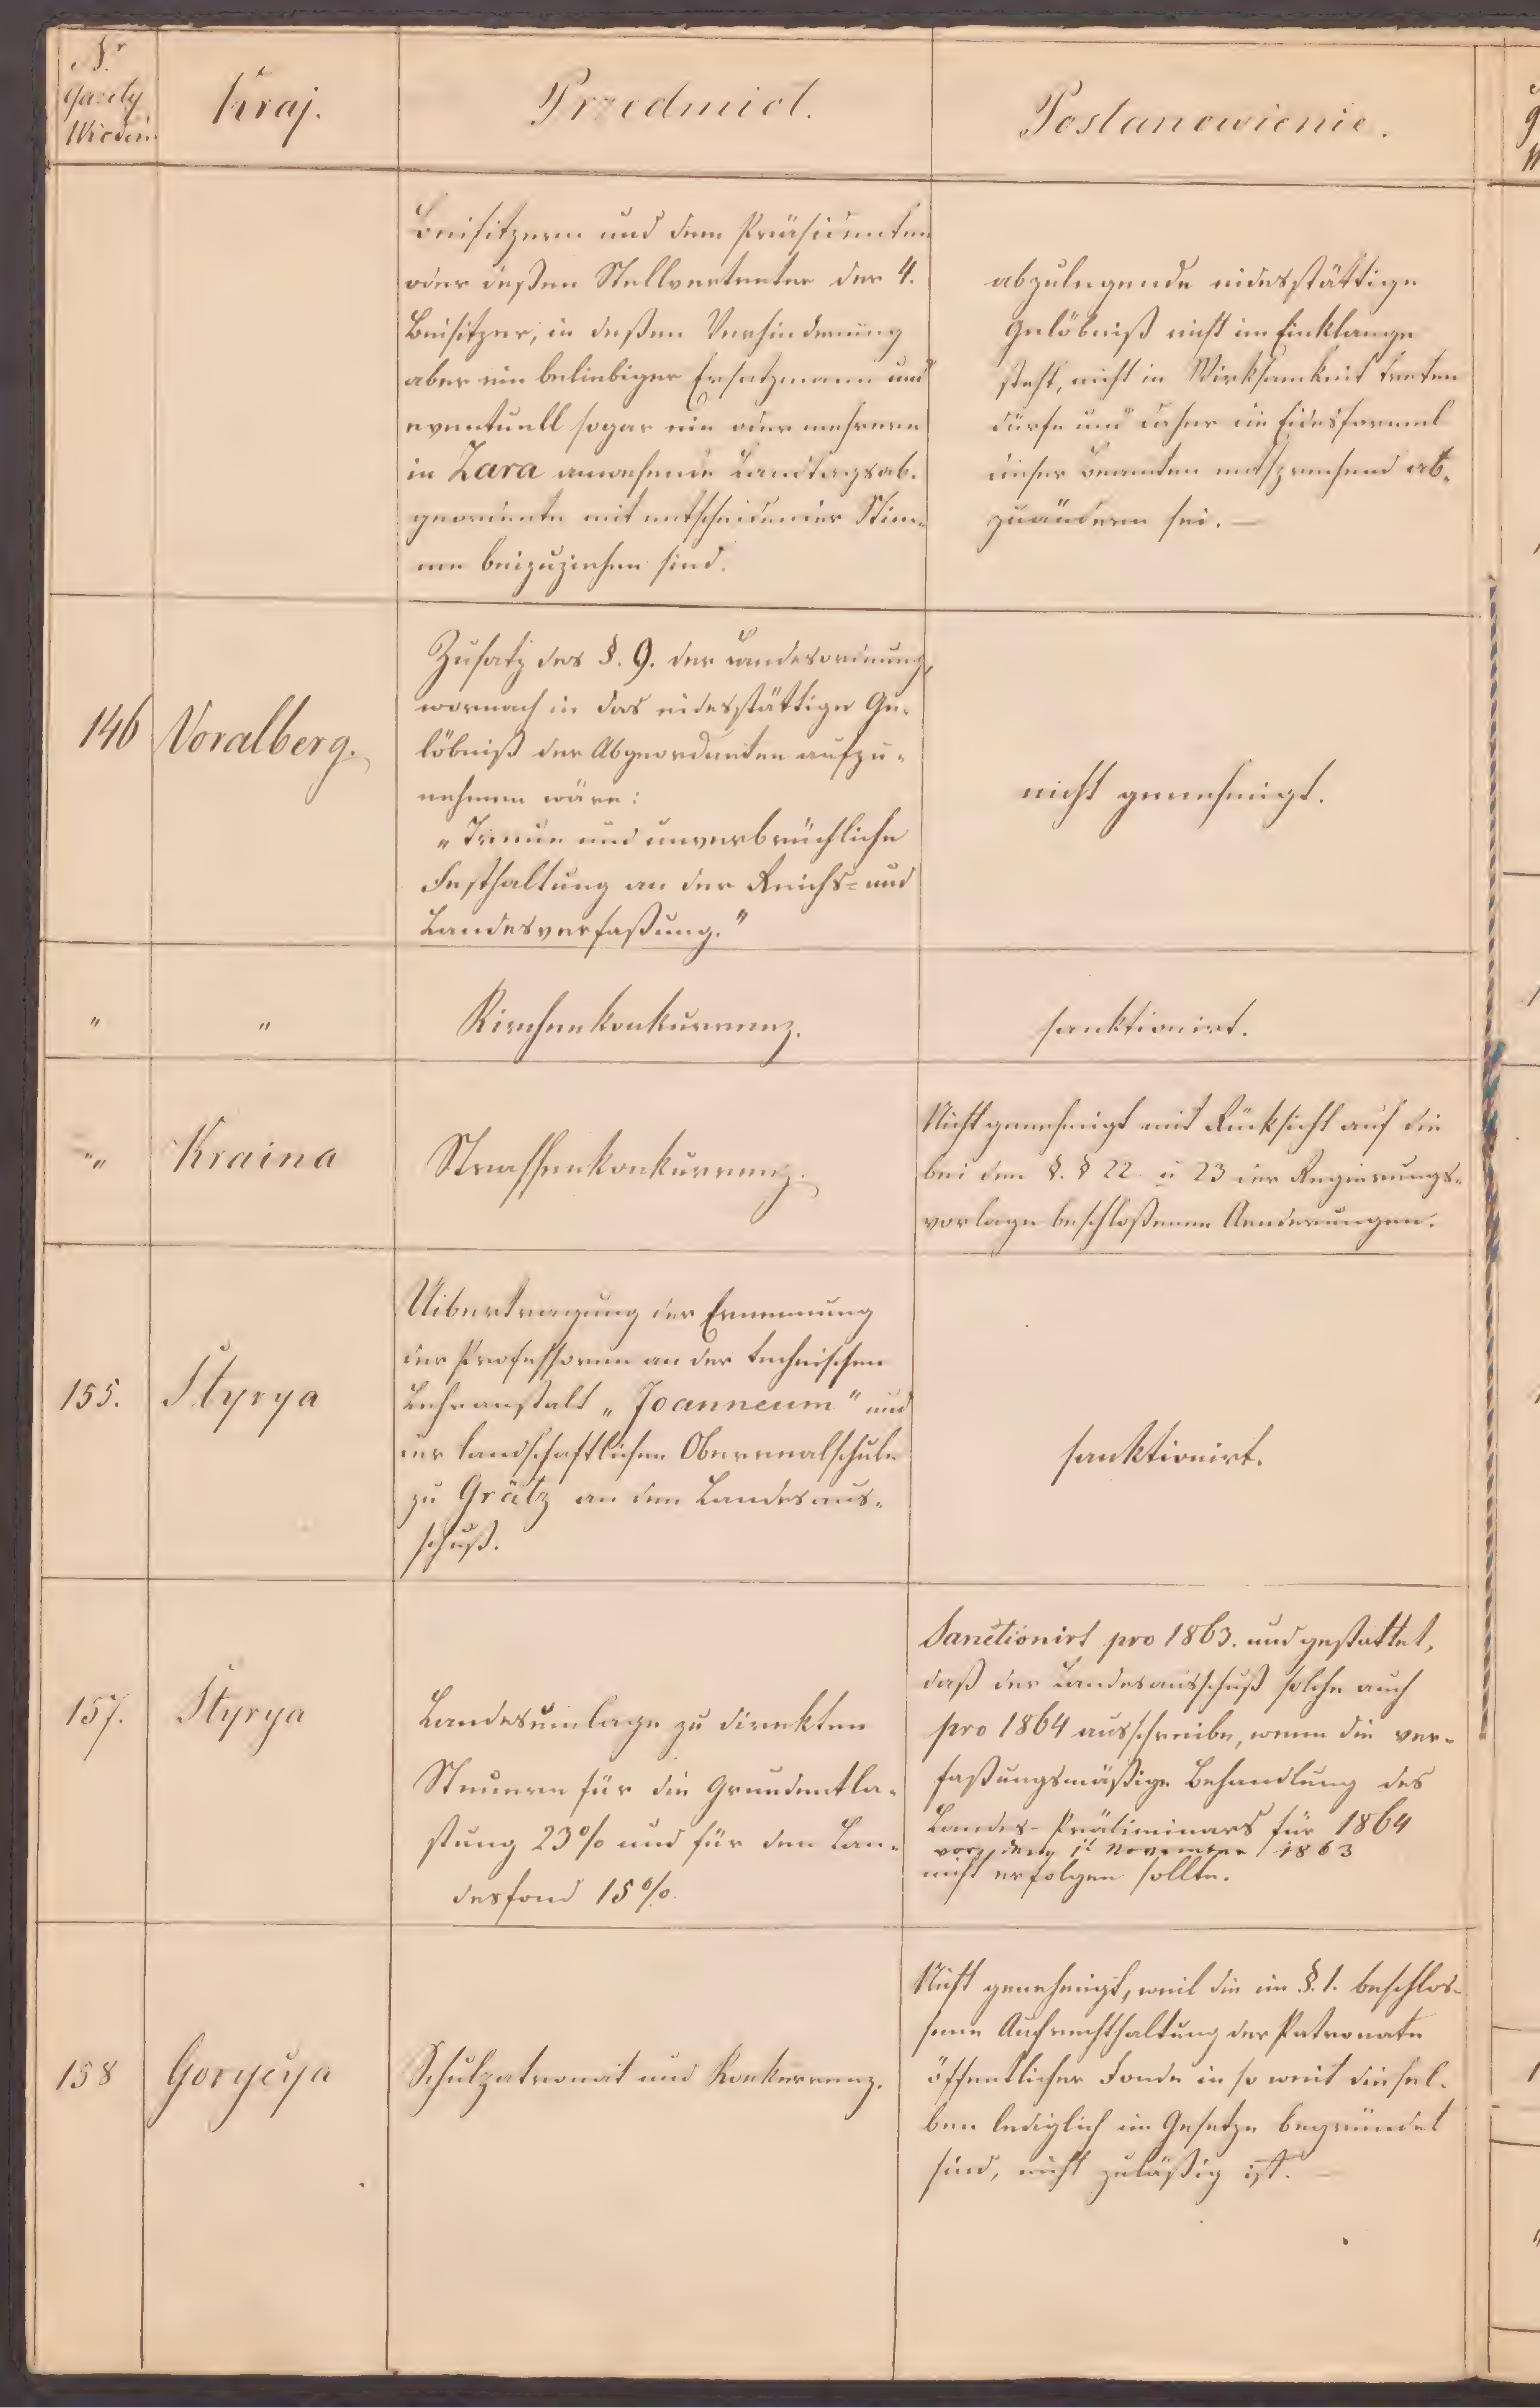 Nr
Gazety
Wiedeń.
Kraj.
Przedmiot.
Postanowienie.
Beisitzern und dem Präsidenten
oder deßen Stellvertreter der 4.
Beisitzer, in deßen Verhinderung
aber ein beliebiger Ersatzmann und
eventuell sogar ein oder mehrere
in Zara anwesende Landtagsab-
geordnete mit entscheidender Stim-
me beizuziehen sind.
abzulegende eidesstättige
Gelöbniß nicht im Einklange
steht, nicht in Wirksamkeit treten
dürfe und daher die Eidesformel
dieser Beamten entsprechend ab-
zuändern sei. —
146
Voralberg.
Zusatz des §. 9. der Landesordnung,
wornach in das eidesstättige Ge-
löbniß der Abgeordneten aufzu-
nehmen wäre:
"Treue und unverbrüchliche
Festhaltung an der Reichs- und
Landesverfaßung."
nicht genehmigt.
" "
Kirchenkonkurrenz.
sanktionirt.
"
Kraina
Strassenkonkurrenz.
Nicht genehmigt mit Rücksicht auf die
bei dem §. § 22 u 23 der Regierungs-
vorlage beschloßenen Aenderungen.
155.
Styrya
Uibertragung der Ernennung
der Professoren an der technischen
Lehranstalt "Joanneum" und
der landschaftlichen Oberrealschule
zu Grätz an den Landesaus-
schuß.
sanktionirt.
157.
Styrya
Landesumlage zu direkten
Steuern für die Grundentla-
stung 23% und für den Lan-
desfond 15%.
Sanctionirt pro 1863. und gestattet,
daß der Landesausschuß solche auch
pro 1864 ausschreibe, wenn die ver-
faßungsmäßige Behandlung des
Landes-Präliminars für 1864
vor dem 1t November 1863
nicht erfolgen sollte.
158
Gorycya
Schulpatronat und Konkurrenz.
Nicht genehmigt, weil die im §. 1. beschlos-
sene Aufrechthaltung der Patronate
öffentlicher Fonde in so weit diesel-
ben lediglich im Gesetze begründet
sind, nicht zuläßig ist. —